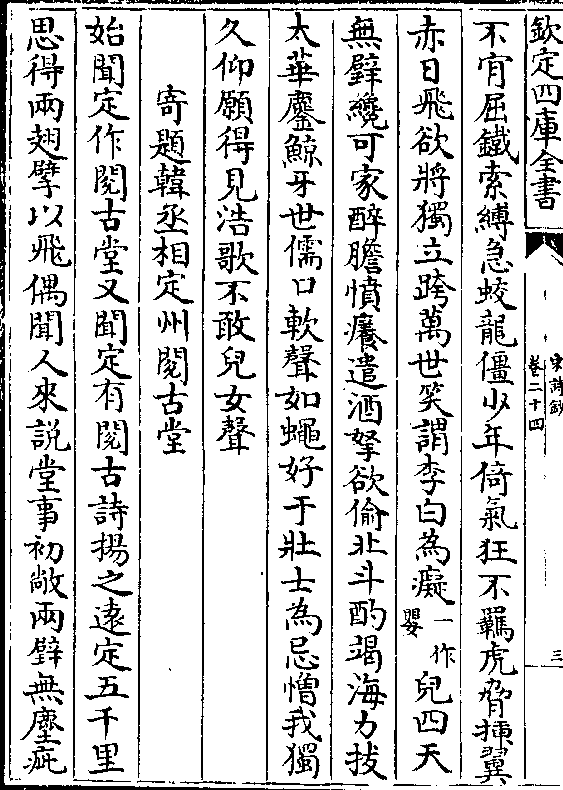 欽定四庫全書
宋詩鈔
卷二十四
三
不肯屈鐵索縛急蛟龍僵少年倚氣狂不羈虎脅插翼
赤日飛欲將獨立跨萬世笑謂李白為癡一作嬰兒四天
無壁纔可家醉膽憤癢遣酒拏欲偷北斗酌竭海力拔
太華鏖鯨牙世儒口軟聲如蠅好于壯士為忌憎我獨
久仰願得見浩歌不敢兒女聲
寄題韓丞相定州閱古堂
始聞定作閱古堂又聞定有閱古詩揚之遠定五千里
思得兩翅擘以飛偶聞人來說堂事初敞兩壁無塵疵